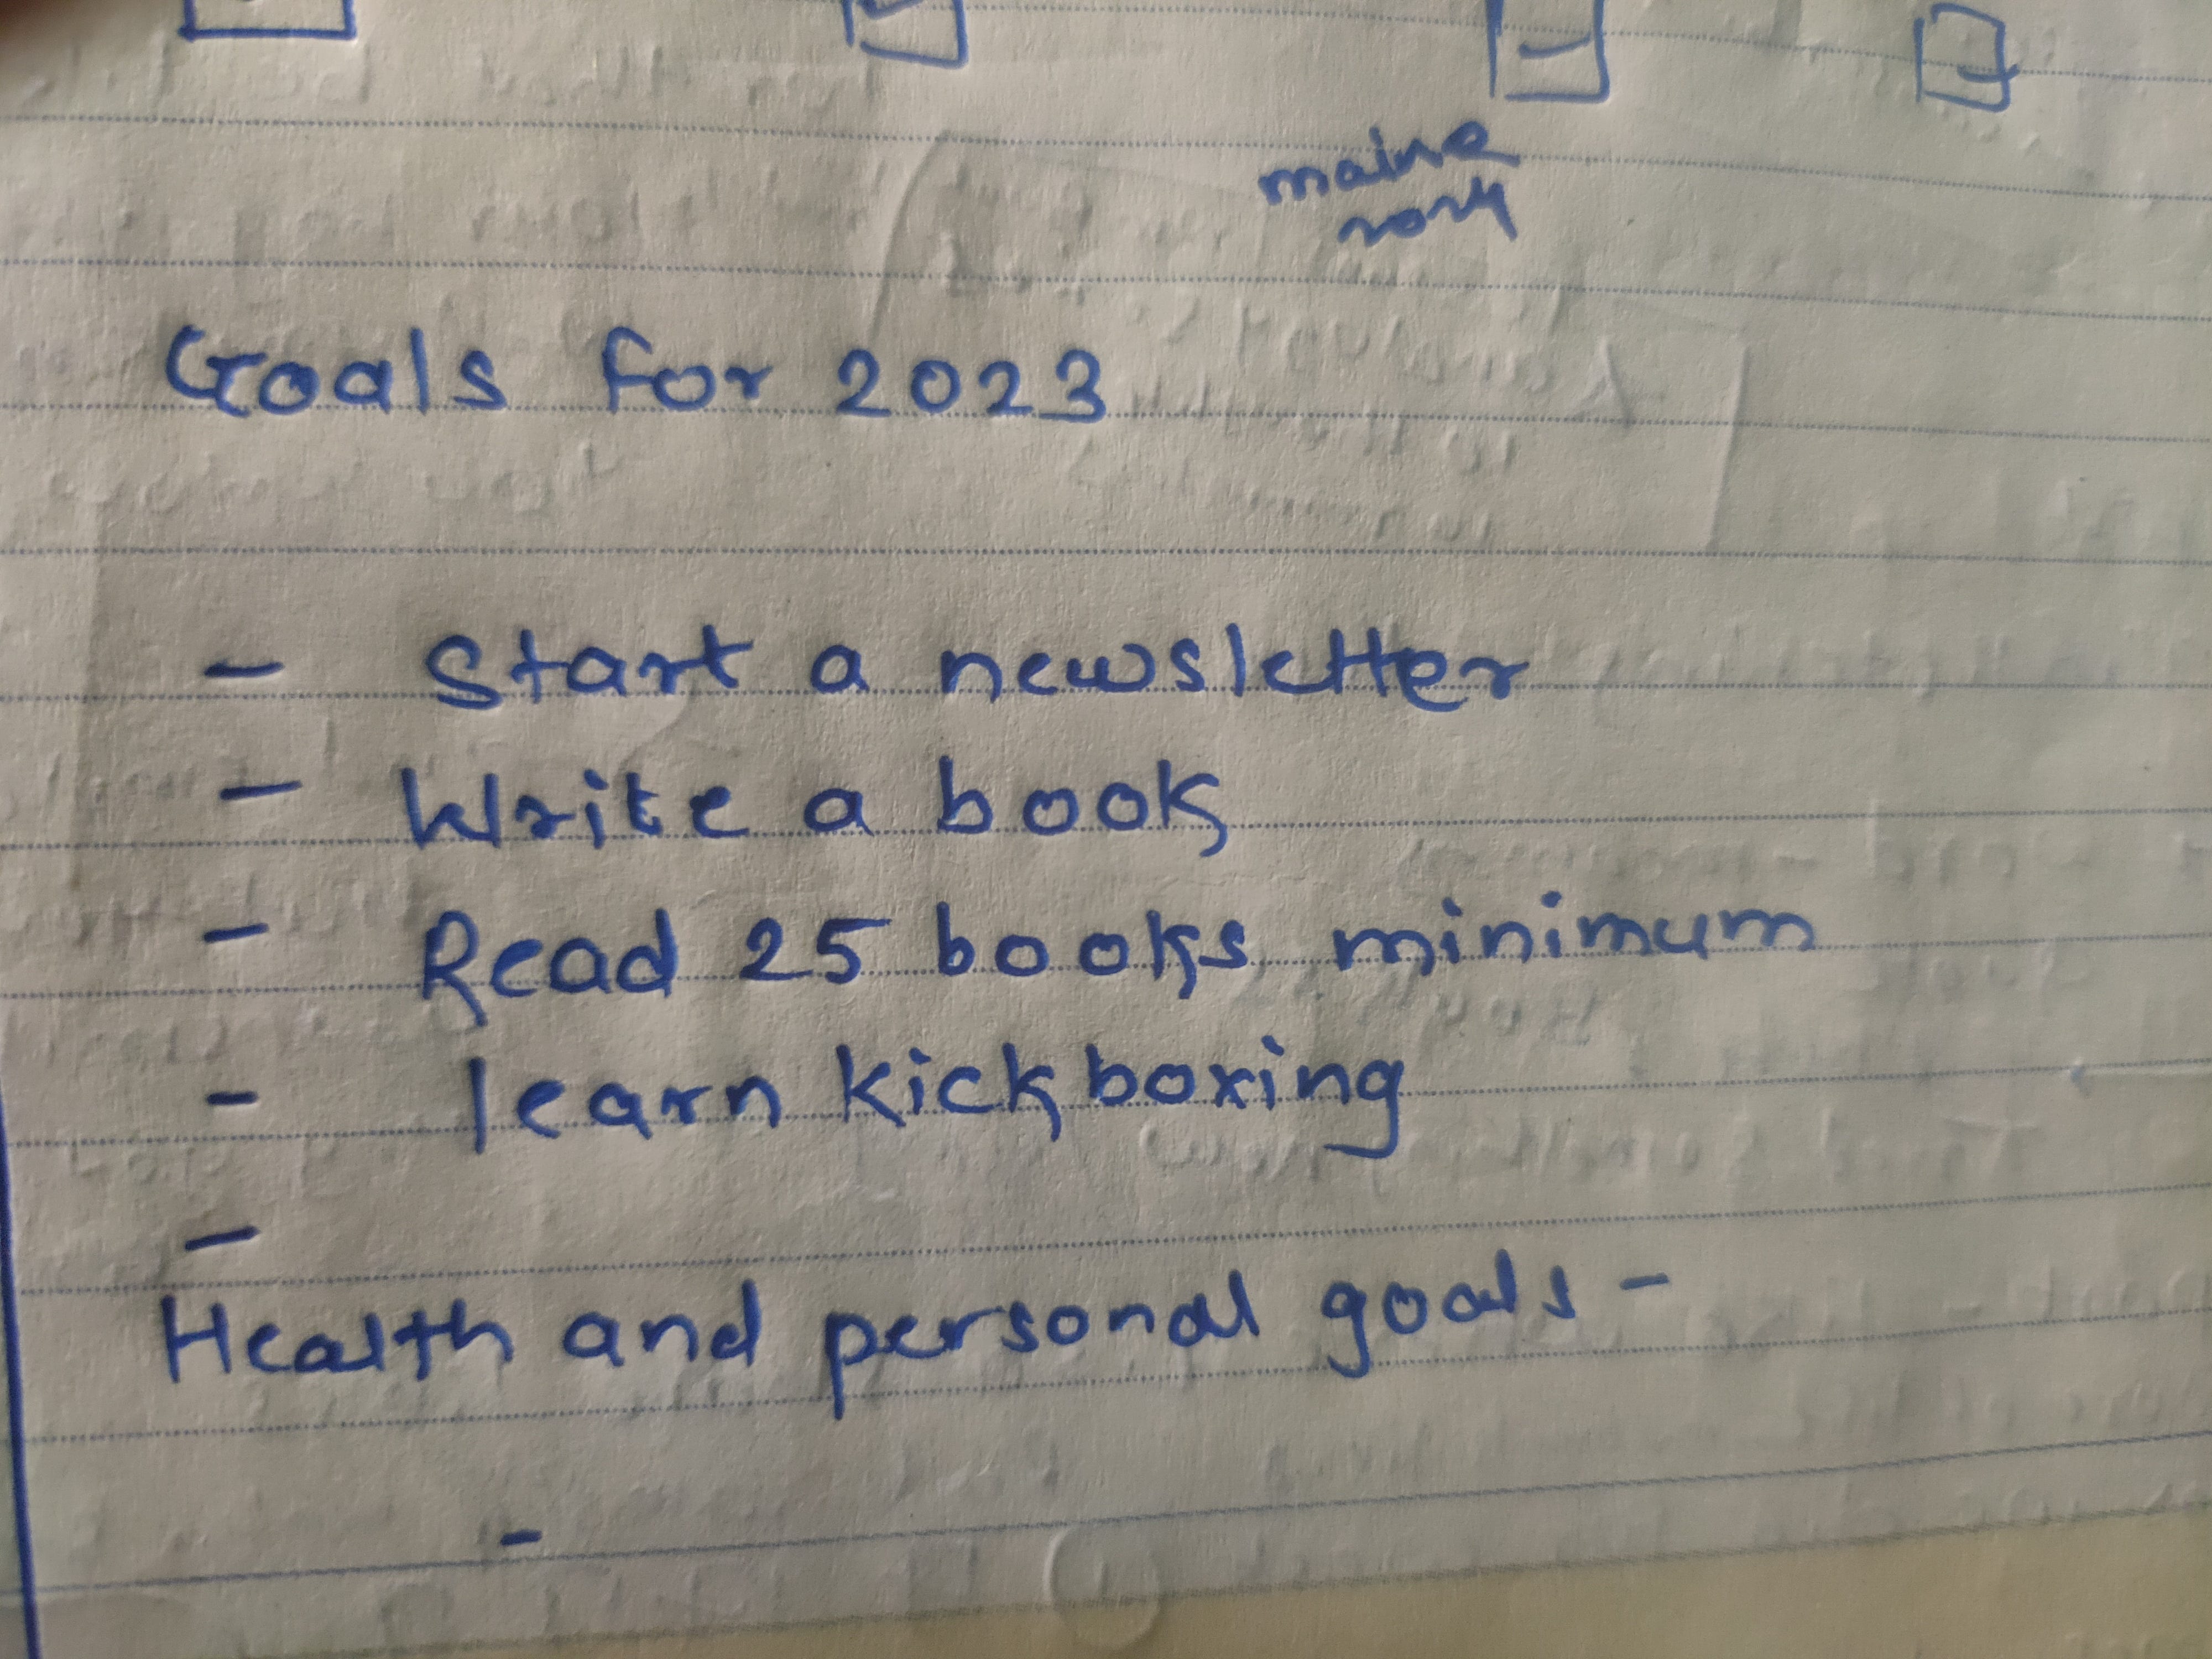 Goals for 2023
- Start a newsletter
- Write a book
- Read 25 books minimum
- learn kickboxing
-
Health and personal goals -
-